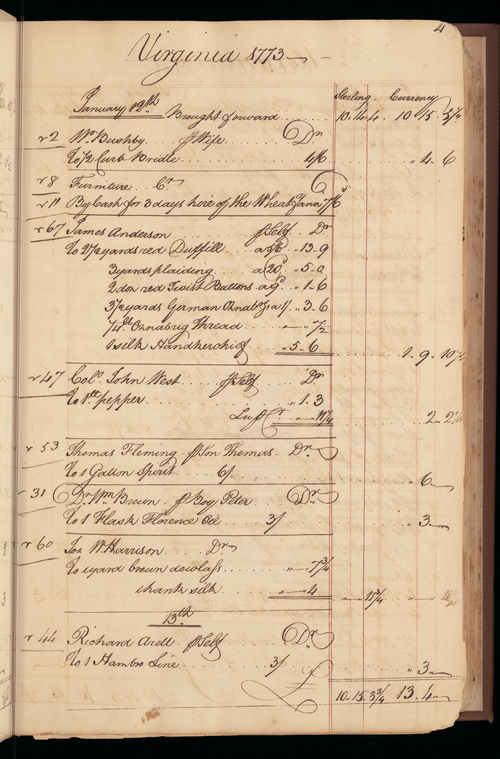 4
Virginia 1773
Sterling. Currency
January 12th Brought forward 10.14.4. 10.15.
v 2 Wm Bushby P Wife Dr
To 1/2 Curb Bridle 4/6 " 4. 6
v 8 Furniture Cr
v 11 By Cash for 3 days hire of the Wheat Fann 7/6
v 67 James Anderson P Self Dr
To 2 3/4 yards red Duffill a 5/ .. 13.. 9
3 yards plaiding a 20d .. 5.. 0
2 doz red Twist Buttons a 9d .. 1.. 6
3 1/2 yards German Oznabrgs a 1/ .. 3.. 6
1/4 lb Oznabrig Thread 7 1/2
1 silk Handkerchief .. 5.. 6 1.. 9.. 10 1/2
v 47 Colo. John West P Self Dr
To 1 lb pepper .. 1.. 3
11 1/4 2.. 2 1/4
v 53 Thomas Fleming P Son Thomas Dr
To 1 Gallon Spirit 6/ .. 6
v 31 Dr Wm Brown P Boy Peter Dr
To 1 Flask Florence Oil 3/ .. 3
v 60 Jos. W. Harrison Dr
To 1 yard brown dowlass 7 3/4
1 hank silk 4 11 3/4
13th
v 44 Richard Arell P Self Dr
To 1 Hambro Line 3/ " 3
10.. 15.. 3 3/4 13.. 4